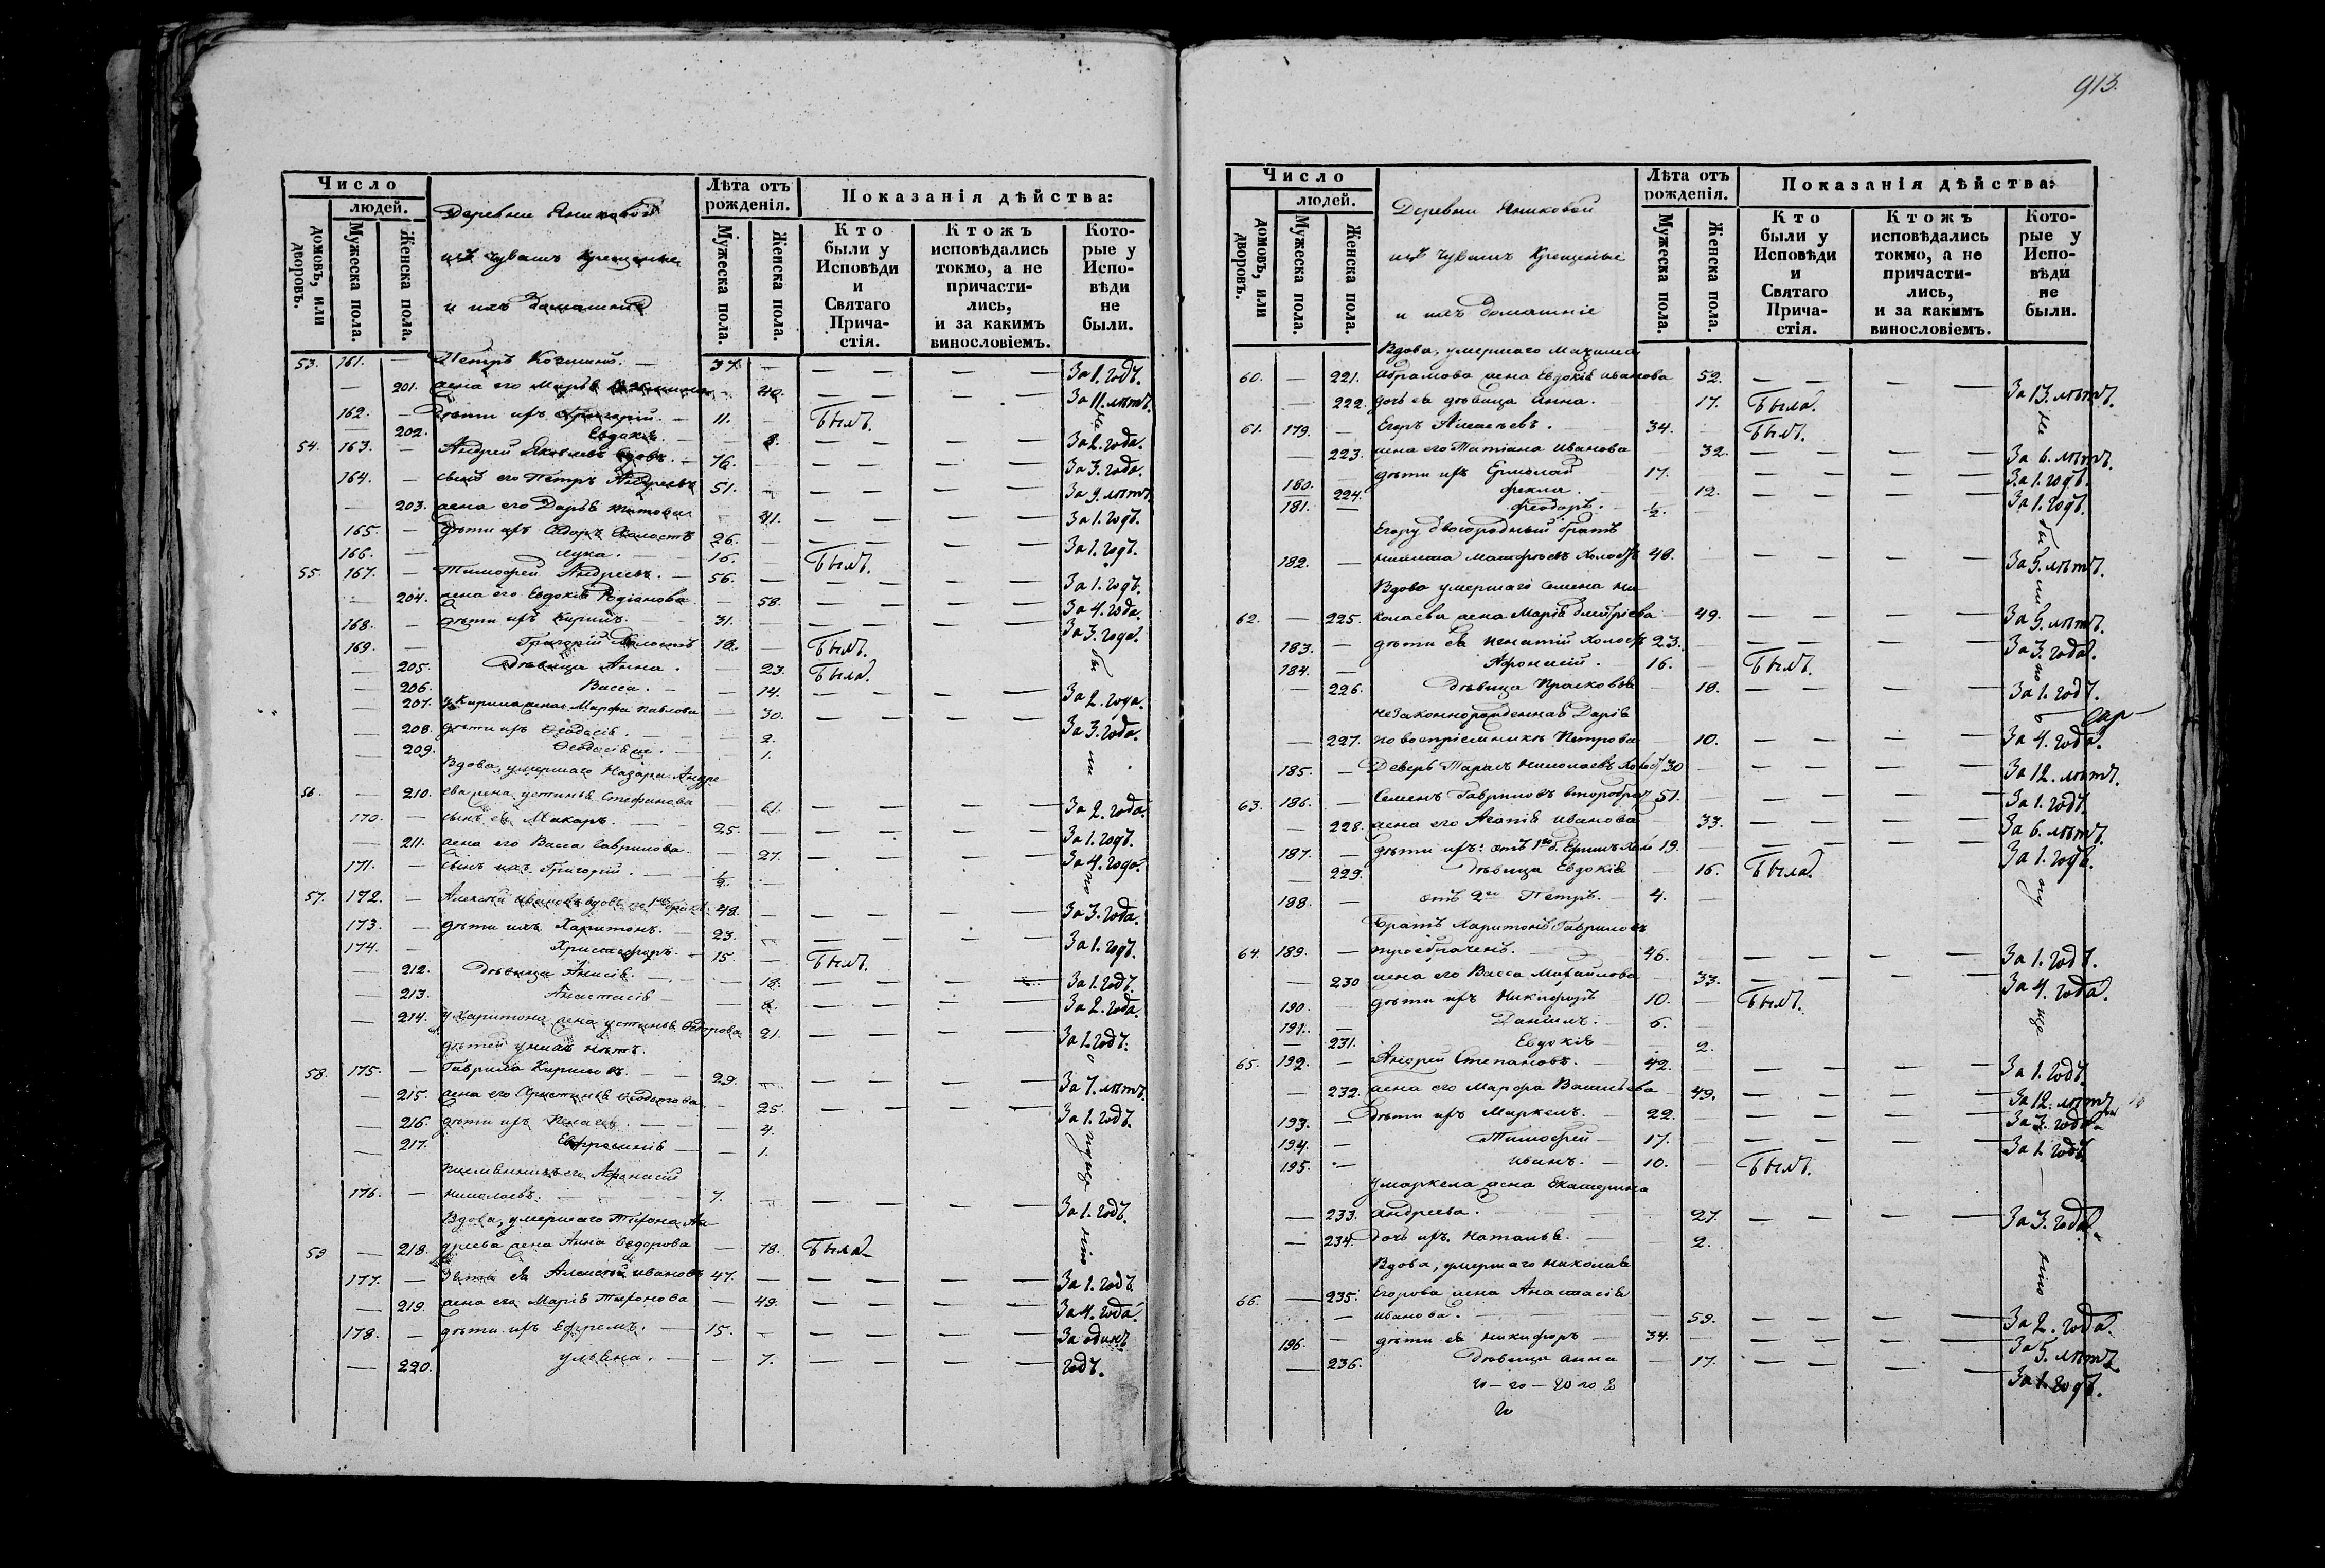 913.
Число
людей.
домовъ, или дворовъ.
Мужеска пола.
Женска пола.
Деревни Яниковой
изъ чувашъ крещеные
и ихъ домашніе
Лѣта отъ рожденія.
Мужеска пола.
Женска пола.
Показанія дѣйства:
Кто были у Исповѣди и Святаго Причастія.
Ктожъ исповѣдались токмо, а не причастились, и за какимъ винословіемъ.
Которые у Исповѣди не были.
53. 161. — Петръ Козминъ. — 37. — — — — За 1. годъ.
— 201. жена его Марѳа — 40. — — — За 11. лѣтъ.
162. — дѣти ихъ Григорій. — 11. Былъ.
— 202. Евдокія. — — 8. — — — За 2. года.
54. 163. — Андрей Яковлевъ вдовъ. — 76. — — — За 3. года.
164. — сынъ его Петръ Андреевъ 51. — — — За 9. лѣтъ.
— 203. жена его Дарья Титова — 41. — — — За 1. годъ.
165. — дѣти ихъ Ѳедоръ холостъ 26. — — — За 1. годъ.
166. — Лука. — 16. Былъ.
55. 167. — Тимофей Андреевъ. — 56. — — — За 1. годъ.
— 204. жена его Евдокія Родіонова — 58. — — — За 4. года.
168. — дѣти ихъ Кирилъ. 31. — — — За 3. года.
169. — Григорій холостъ 18. — Былъ.
— 205. дѣвица Анна. — 23. Была.
— 206. Васса. — — 14. — — — За 2. года.
— 207. у Кирила жена Марфа Павлова — 30. — — — За 3. года.
— 208. дѣти ихъ Ѳеодосія. — — 2.
— 209. Ѳеодосія же. — — 1.
Вдова, умершаго Назара Андре-
56. — 210. ева жена Устинья Стефанова — 61. — — — За 2. года.
170. — сынъ ея Макаръ. — 25. — — — За 1. годъ.
— 211. жена его Васса Гаврилова. — 27. — — — За 4. года.
171. — сынъ ихъ Григорій. — ½.
57. 172. — Алексѣй Ивановъ вдовъ по 1мъ бракѣ 48. — — — За 3. года.
173. — дѣти ихъ Харитонъ. — 23. — — — За 1. годъ.
174. — Христофоръ. — 15. — Былъ.
— 212. дѣвица Анисія. — — 18. — — — За 1. годъ.
— 213. Анастасія — — 8. — — — За 2. года.
— 214. у Харитона жена Устинья Ѳедорова 21. — — — За 1. годъ.
дѣтей у нихъ нѣтъ.
58. 175. — Гаврила Кириловъ. — 29. — — — За 7. лѣтъ.
— 215. жена его Христинья Ѳеодотова 25. — — — За 1. годъ.
— 216. дѣти ихъ — — 4.
— 217. Евфросинія — — 1.
племянникъ его Афонасій
176. — Николаевъ. — 7. — — — За 1. годъ.
Вдова, умершаго Тихона Ан-
59 — 218. дреева жена Анна Ѳедорова — 78. Была
177. — Зять ея Алексѣй Ивановъ 47. — — — За 1. годъ.
— 219. жена его Марія Тихонова — 49. — — — За 4. года.
178. — дѣти ихъ Ефремъ. — 15. — — — За одинъ
— 220. Ульяна. — — 7. — — — годъ.
Число
людей.
домовъ, или дворовъ.
Мужеска пола.
Женска пола.
Деревни Яниковой
изъ чувашъ крещеные
и ихъ домашніе
Лѣта отъ рожденія.
Мужеска пола.
Женска пола.
Показанія дѣйства:
Кто были у Исповѣди и Святаго Причастія.
Ктожъ исповѣдались токмо, а не причастились, и за какимъ винословіемъ.
Которые у Исповѣди не были.
Вдова, умершаго Максима
60. — 221. Абрамова жена Евдокія Иванова 52. — — — За 13. лѣтъ.
— 222. дочь ея дѣвица Анна. 17. Была.
61. 179. — Егоръ Алексѣевъ. 34. Былъ.
— 223. жена его Татіана Иванова 32. — — — За 6. лѣтъ.
180. — дѣти ихъ Ермолай 17. — — — За 1. годъ.
— 224. Фекла. — 12. — — — За 1. годъ.
181. — Феодоръ. — ½.
Егору двоюродный братъ
182. — Никита холостъ 48. — — — За 5. лѣтъ.
Вдова умершаго Семена Ни-
62. — 225. колаева жена Марія Дмитріева 49. — — — За 5. лѣтъ.
183. — дѣти ея Игнатій холостъ 23. — — — За 3. года.
184. — Афонасій. — 16. Былъ.
— 226. дѣвица Прасковья 18. — — — За 1. годъ.
незаконнорожденная Дарія
— 227. по воспріемникѣ Петрова 10. — — — За 4. года.
185. — Деверь Тарасъ Николаевъ холос. 30 — — — За 12. лѣтъ.
63. 186. — Семенъ Гавриловъ второбрач. 51. — — — За 1. годъ.
— 228. жена его Агапія Иванова — 33. — — — За 6. лѣтъ.
187. — дѣти ихъ: отъ 1го б. Ефимъ хол. 19. — — — За 1. годъ.
— 229. дѣвица Евдокія 16. Была.
188. — отъ 2го Петръ. — 4. —
Братъ Харитонъ Гавриловъ
64. 189. — троебраченъ. — 46. — — — За 1. годъ.
— 230 жена его Васса Михайлова 33. — — — За 4. года.
190. — дѣти ихъ Никифоръ 10. — Былъ.
191. — Даніилъ. — 6. —
— 231. Евдокія — 2.
65. 192. — Андрей Степановъ. 42. — — — За 1. годъ.
— 232. жена его Марфа Васильева — 49. — — — За 12. лѣтъ
193. — дѣти ихъ Маркелъ. — 22. — — — За 3. года
194. — Тимофей — 17. — — — За 1. годъ.
195. — Иванъ. — 10. — Былъ.
У Маркела жена Екатерина
— 233. Андреева. — 27. — — — За 3. года
— 234. дочь ихъ Наталья. — 2.
Вдова, умершаго Николая
66. — 235. Егорова жена Анастасія
— Иванова. — 59. — — — За 2. года.
196. — дѣти ея Никифоръ — 34. — — — За 5. лѣтъ
— 236. дѣвица Анна — 17. — — — За 1. годъ.